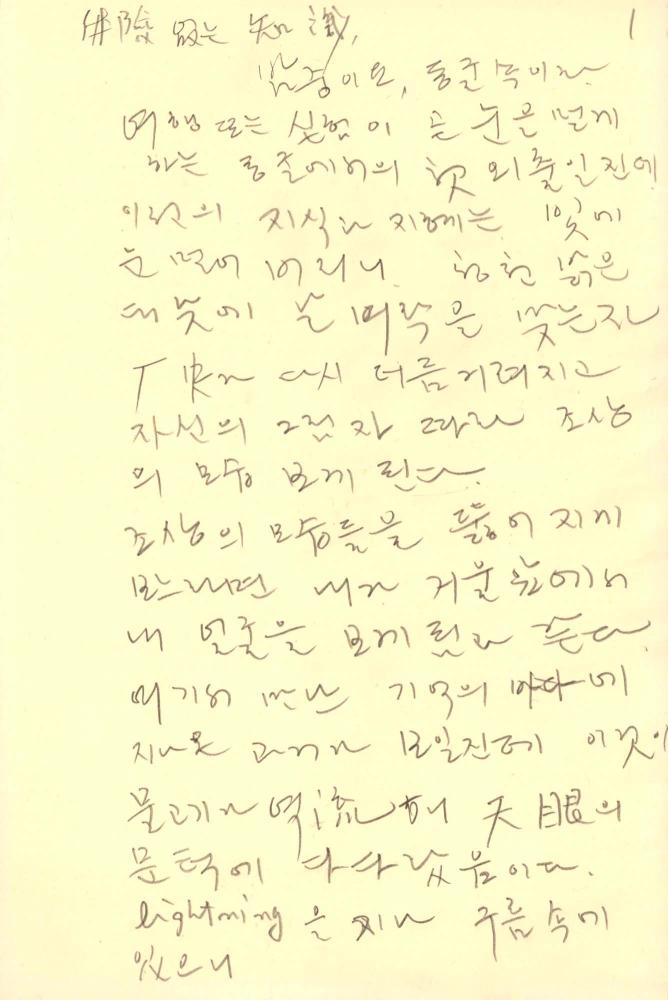 1
없는 知識,
밤중이요, 동굴 속이라
여행 또는 실험이 큰 눈을 멀게
하는 동굴에서의 첫 외출일진대
이전의 지식과 지혜는 빛에
눈 멀어 버리니. 청천 밝은
대낮에 날벼락을 맞는지라
다시 더듬거려지고
자신의 그림자 따라 조상
의 모습 보게 된다.
조상의 모습들을 뚫어지게
보노라면 내가 거울 앞에서
내 얼굴을 보게 됨과 같다.
여기서 만난 기억의 바다에
지나온 과거가 보일진데 이것이
물고기가 역流해 天眼의
문턱에 다다랐음이다.
lightning을 지나 구름 속에
있으니